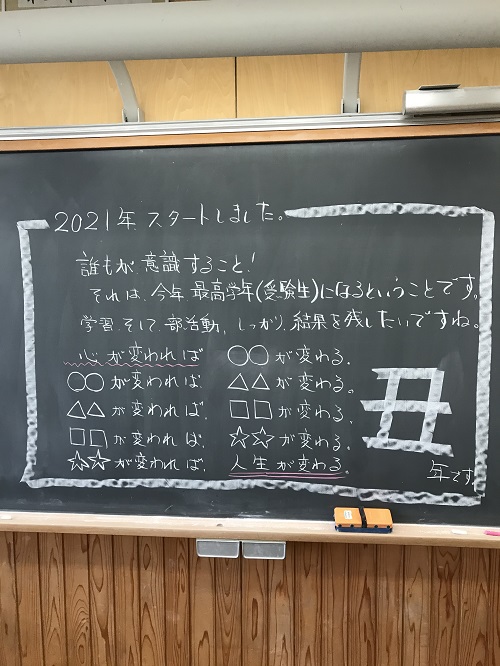 2021年 スタートしました。
誰もが、意識すること!
それは、今年 最高学年(受験生)になるということです。
学習、そして、部活動、しっかり、結果を残したいですね。
心が変われば ○○が変わる。
○○が変われば、 △△が変わる。
△△が変われば、 □□が変わる。
□□が変われば、 ☆☆が変わる。
☆☆が変われば、 人生が変わる。
丑
年です。